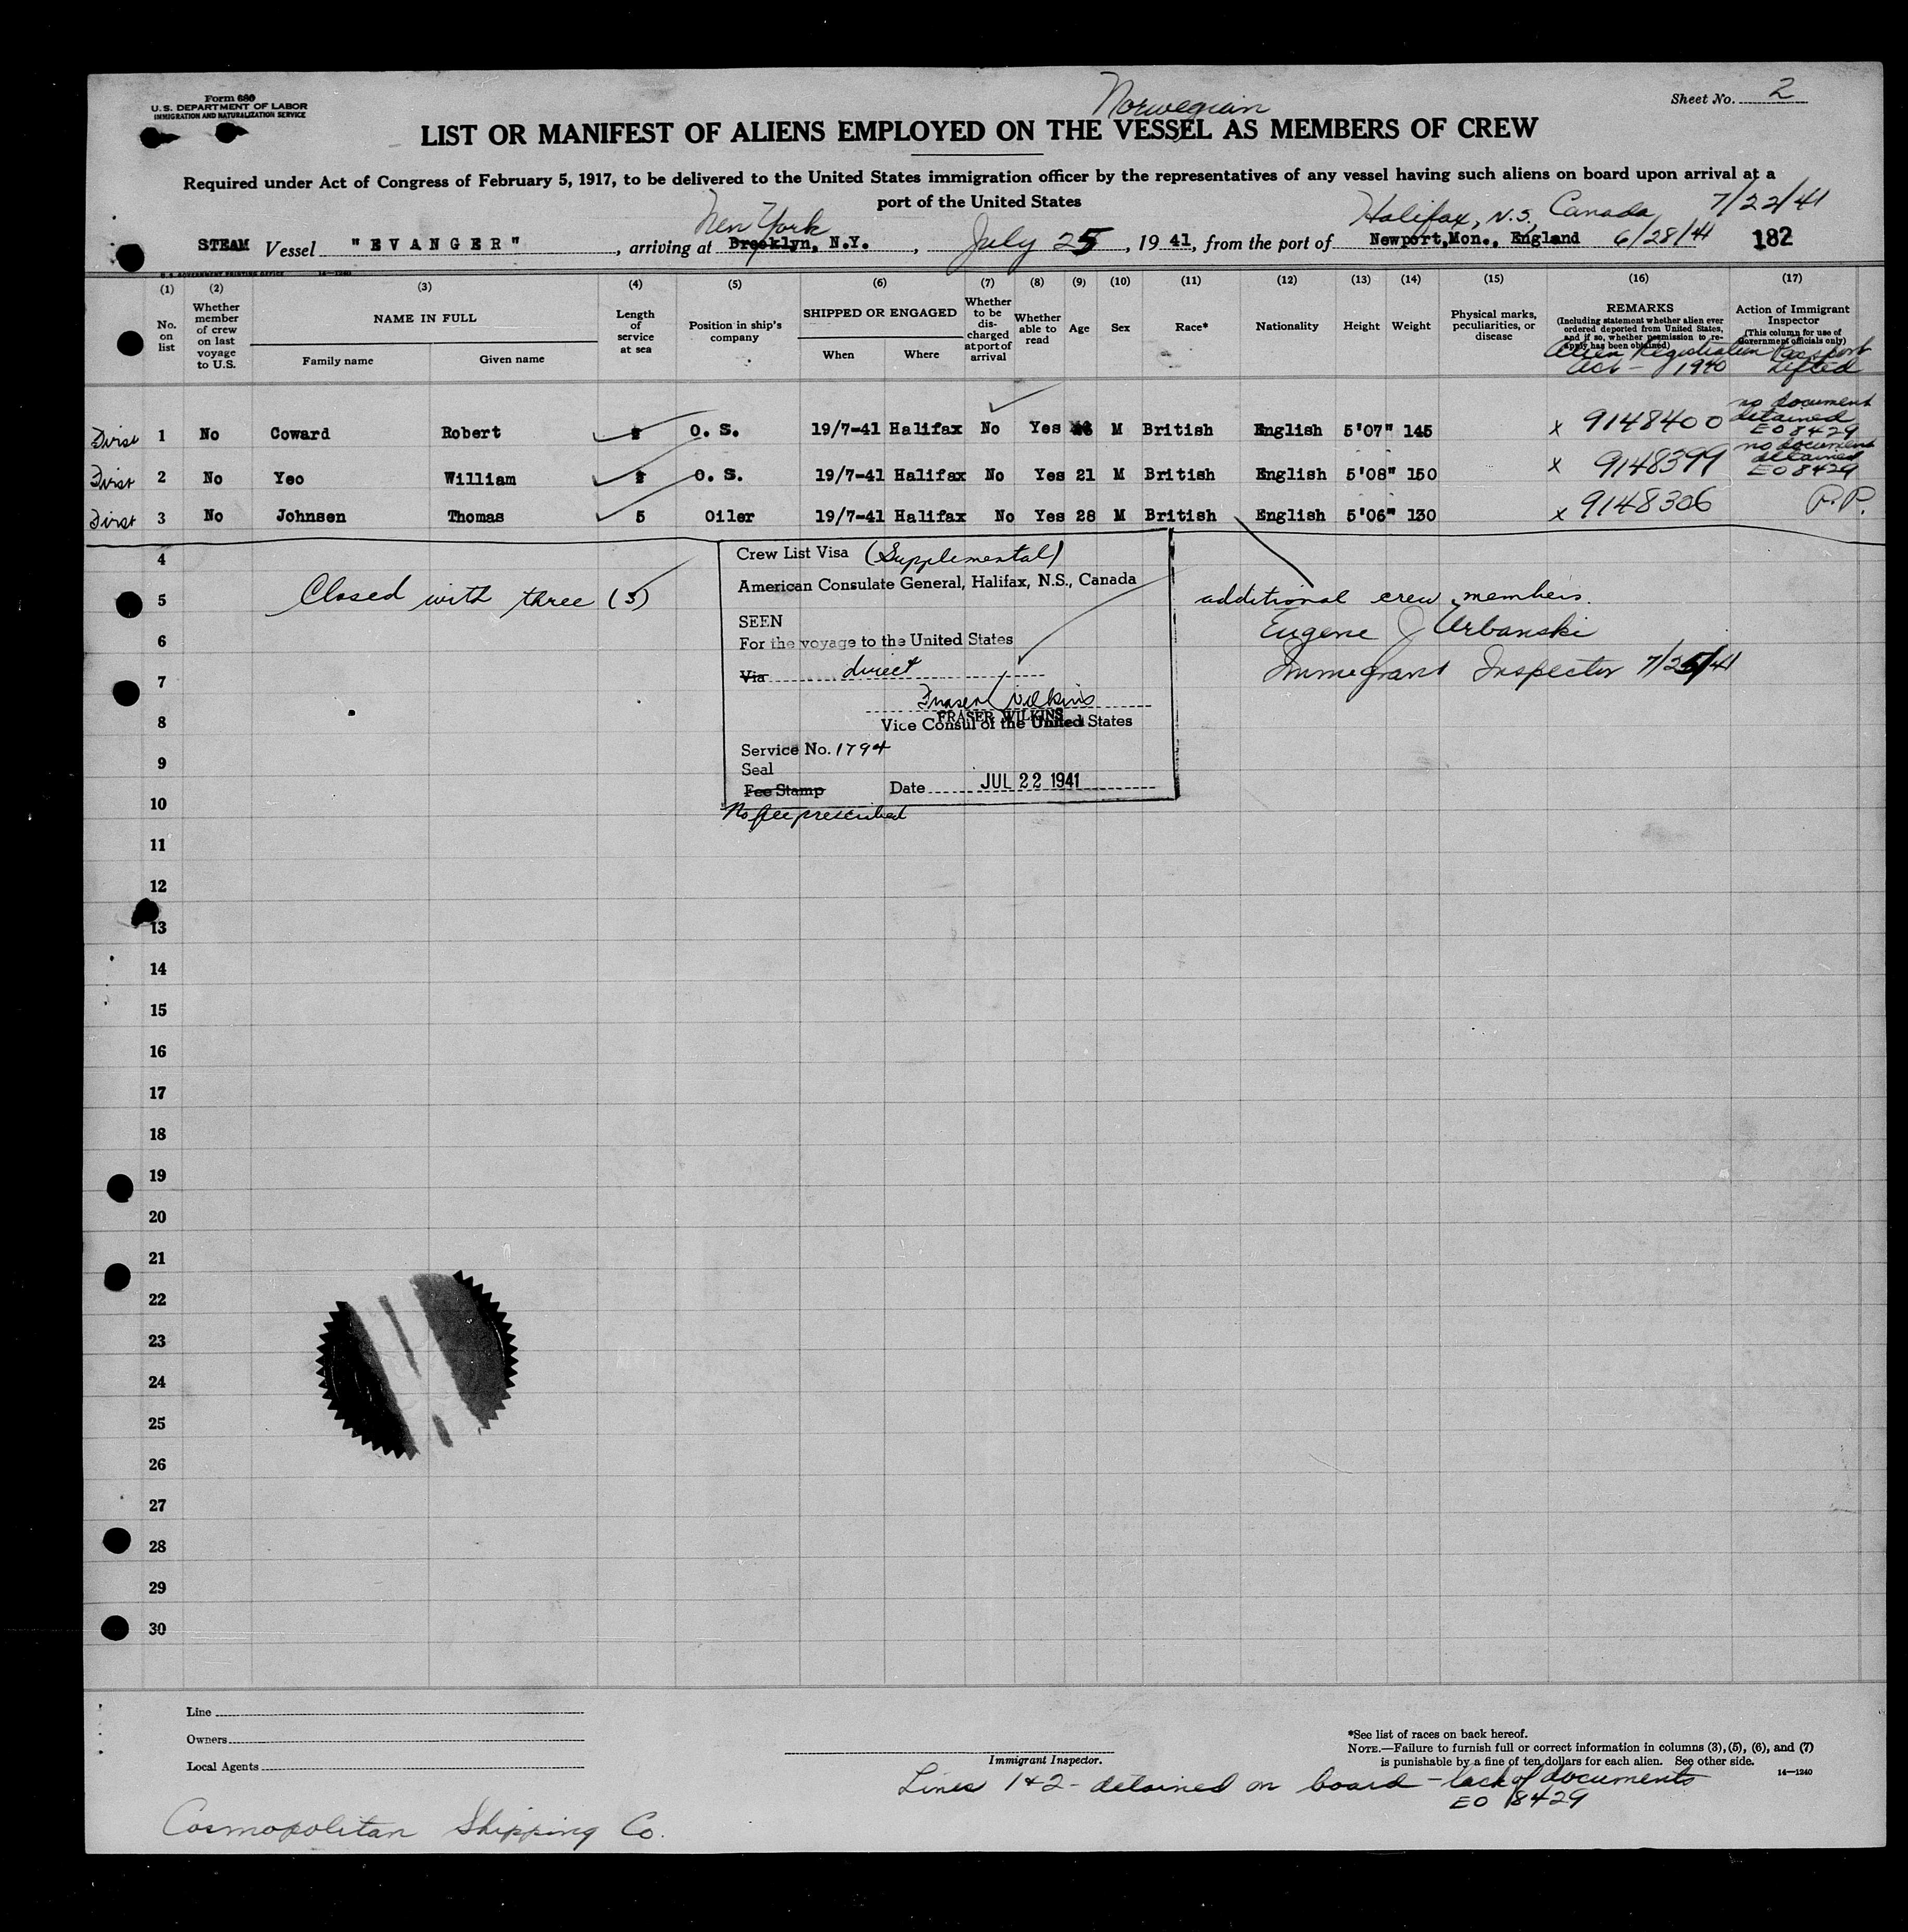 Form 680
U.S. DEPARTMENT OF LABOR
IMMIGRATION AND NATURALIZATION SERVICE
Sheet No. 2
Norwegian
LIST OR MANIFEST OF ALIENS EMPLOYED ON THE VESSEL AS MEMBERS OF CREW
Required under Act of Congress of February 5, 1917, to be delivered to the United States immigration officer by the representatives of any vessel having such aliens on board upon arrival at a
port of the United States
New York Halifax, N.S. Canada 7/22/41
STEAM Vessel "EVANGER", arriving at Brooklyn, N.Y., July 25, 1941, from the port of Newport, Mon., England 6/28/41 182
U.S. GOVERNMENT PRINTING OFFICE
(1) (2) (3) (4) (5) (6) (7) (8) (9) (10) (11) (12) (13) (14) (15) (16) (17)
No. on list
Whether member of crew on last voyage to U.S.
NAME IN FULL
Family name Given name
Length of service at sea
Position in ship's company
SHIPPED OR ENGAGED
When Where
Whether to be discharged at port of arrival
Whether able to read
Age
Sex
Race*
Nationality
Height
Weight
Physical marks, peculiarities, or disease
REMARKS
(Including statement whether alien ever ordered deported from United States, and if so, whether permission to reapply has been obtained)
Alien Registration Act - 1940
Action of Immigrant Inspector
(This column for use of Government officials only)
Passport Lifted
1 No Coward Robert O. S. 19/7-41 Halifax No Yes M British English 5'07" 145 x 9148400 no document detained EO 8429
2 No Yeo William O. S. 19/7-41 Halifax No Yes 21 M British English 5'08" 150 x 9148399 no document detained EO 8429
3 No Johnsen Thomas 5 Oiler 19/7-41 Halifax No Yes 28 M British English 5'06" 130 x 9148306 P.P.
4
5
6
7
8
9
10
11
12
13
14
15
16
17
18
19
20
21
22
23
24
25
26
27
28
29
30
Closed with three (3)
Crew List Visa (Supplemental)
American Consulate General, Halifax, N.S., Canada
SEEN
For the voyage to the United States
Via direct
Fraser Wilkins
FRASER WILKINS
Vice Consul of the United States
Service No. 1794
Seal
Fee Stamp
Date JUL 22 1941
No fee prescribed
additional crew members.
Eugene J Urbanski
Immigrant Inspector 7/25/41
Line
Owners
Local Agents
Cosmopolitan Shipping Co.
Immigrant Inspector.
Lines 1 & 2 - detained on board - lack of documents
EO 8429
*See list of races on back hereof.
NOTE.—Failure to furnish full or correct information in columns (3), (5), (6), and (7)
is punishable by a fine of ten dollars for each alien. See other side.
14—1240